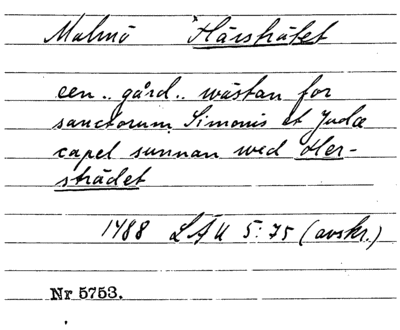 Malmö Härsträtet
een .. gård .. wästan for
sanctorum Simonis et Judæ
capel sunnan wed Her-
strädet
1488 LÄU 5:75 (avskr.)
Nr 5753.